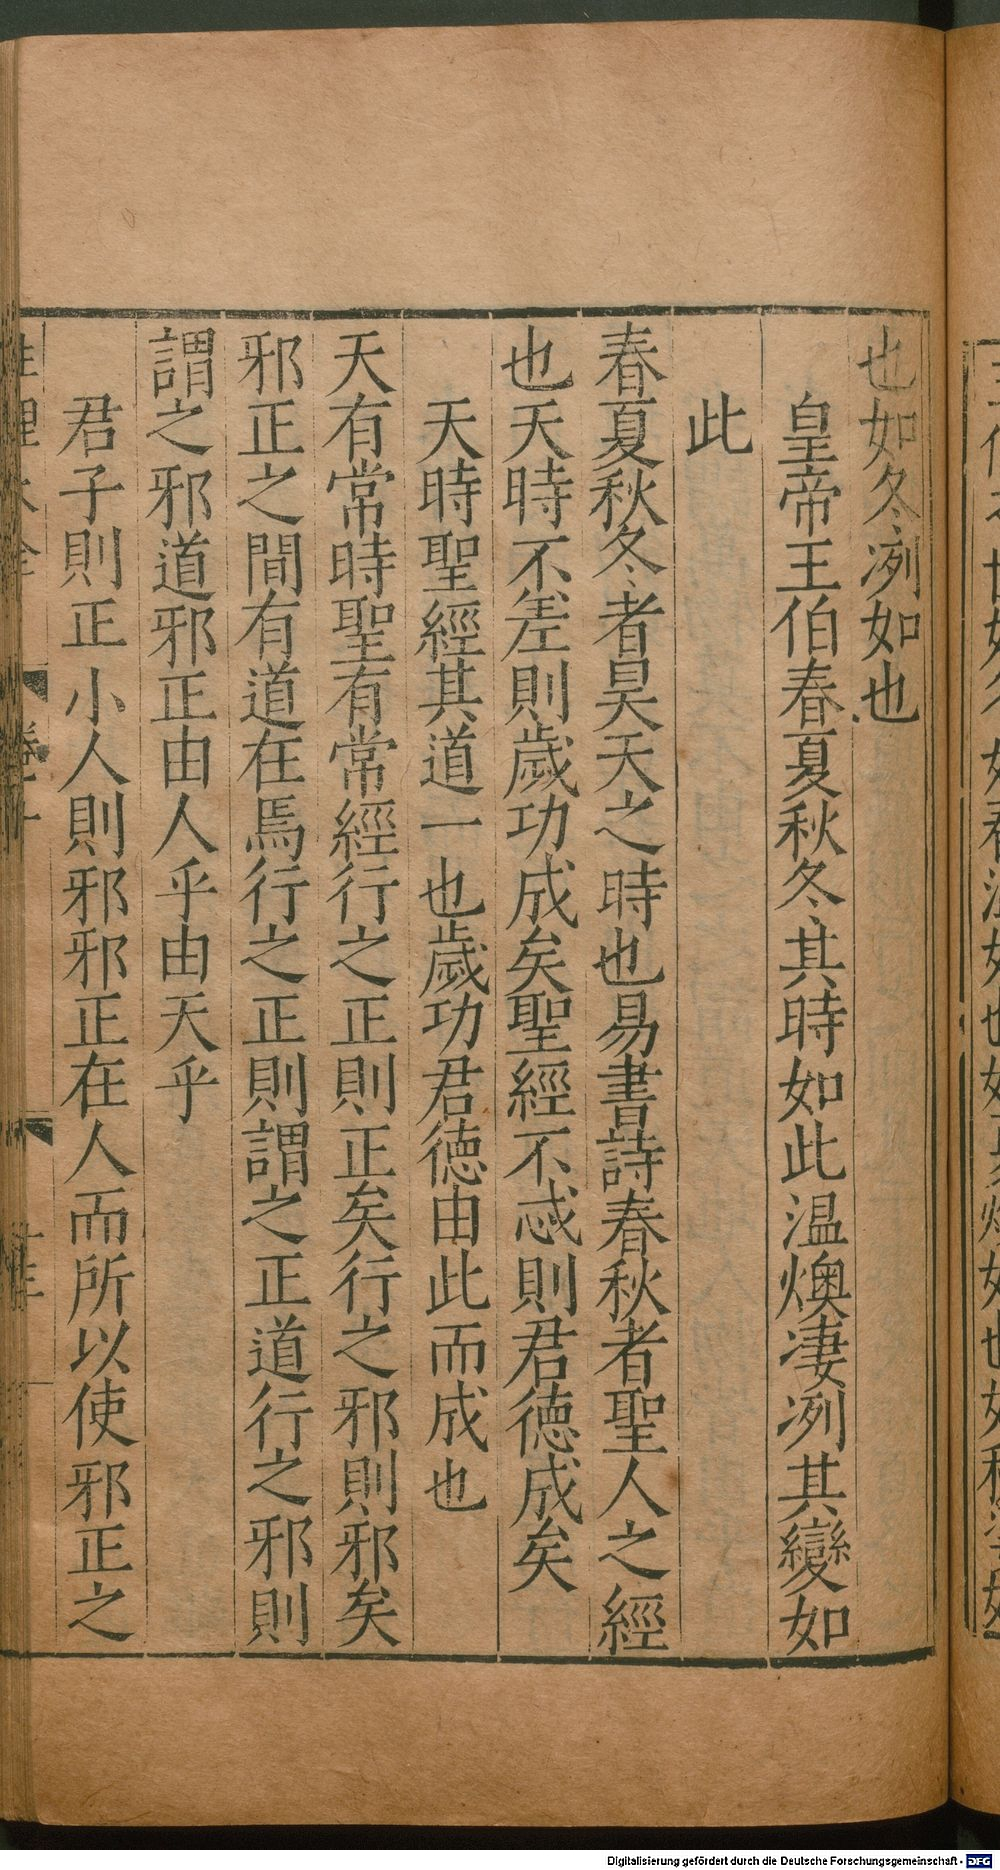 也如冬冽如也
皇帝王伯春夏秋冬其時如此温燠凄冽其變如
此
春夏秋冬者昊天之時也易書詩春秋者聖人之經
也天時不差則歲功成矣聖經不忒則君德成矣
天時聖經其道一也歲功君德由此而成也
天有常時聖有常經行之正則正矣行之邪則邪矣
邪正之間有道在焉行之正則謂之正道行之邪則
謂之邪道邪正由人乎由天乎
君子則正小人則邪邪正在人而所以使邪正之
Digitalisierung gefördert durch die Deutsche Forschungsgemeinschaft - DFG